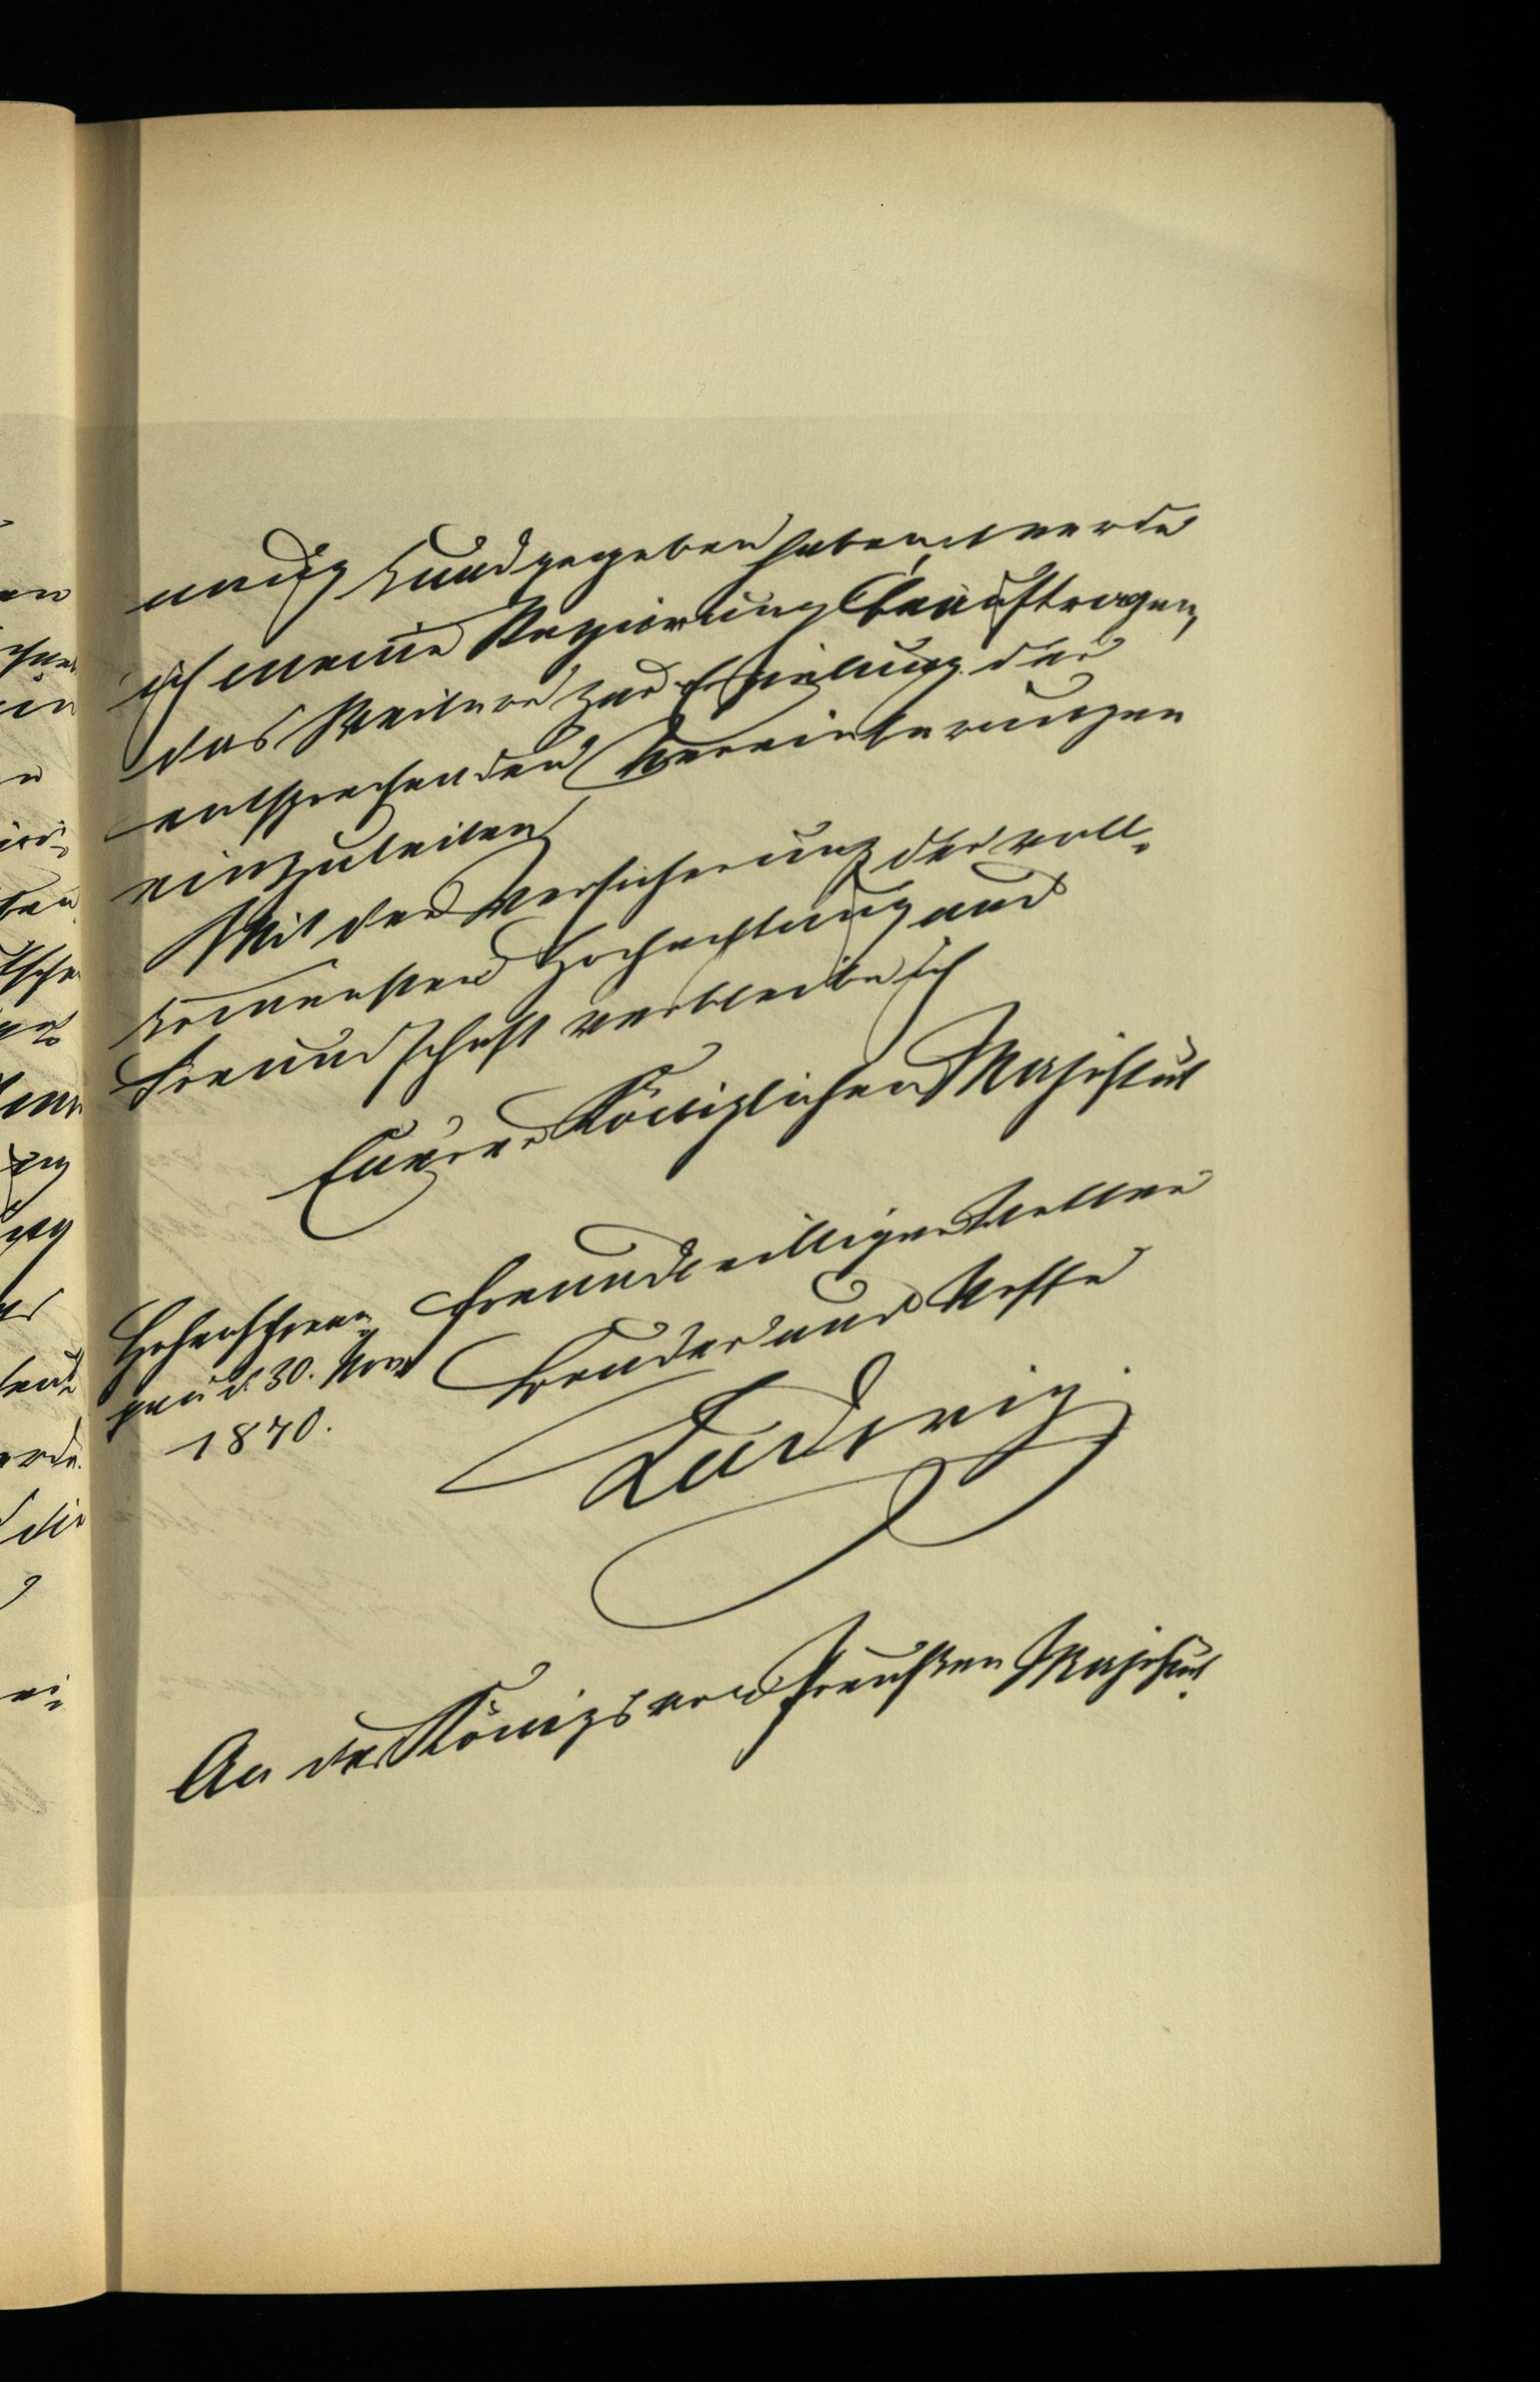 und kundgegeben haben, werde
ich meine Regierung beauftragen,
das Weitere zur Erzielung der
entsprechenden Vereinbarungen
einzuleiten.
Mit der Versicherung der voll-
kommensten Hochachtung und
Freundschaft verbleibe ich
Euerer Königlichen Majestät
freundwilliger Vetter
Bruder und Neffe
Ludwig.
Hohenschwan-
gau d. 30. Nov.
1870.
An des Königs von Preußen Majestät.